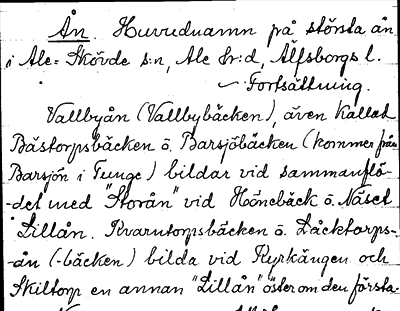 Ån. Huvudnamn på största ån
i Ale-Skövde s:n, Ale hr:d, Älfsborgs l.
Fortsättning.
Vallbyån (Vallbybäcken), även kallad
Båstorpsbäcken o. Barsjöbäcken (kommer från
Barsjön i Tunge) bildar vid sammanflö-
-det med "Storån" vid Hönebäck o. Näset
Lillån. Kvarntorpsbäcken o. Dåcktorps-
-ån (-bäcken) bilda vid Kyrkängen och
Skiltorp en annan "Lillån" öster om den första.